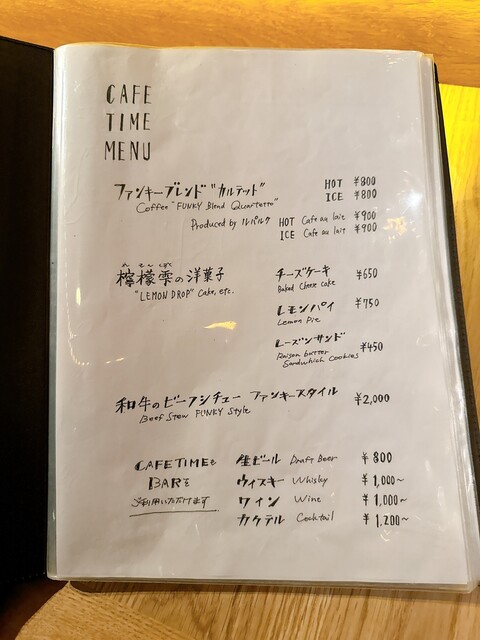 CAFE
TIME
MENU
ファンキーブレンド"カルテット" HOT ¥800
Coffee "FUNKY Blend Quartetto" ICE ¥800
Produced by ルパルク HOT Cafe au lait ¥900
ICE Cafe au lait ¥900
檸檬雫の洋菓子 チーズケーキ ¥650
"LEMON DROP" Cake, etc. Baked Cheese cake
レモンパイ ¥750
Lemon Pie
レーズンサンド ¥450
Raison butter
Sandwhich Cookies
和牛のビーフシチュー ファンキースタイル ¥2,000
Beef Stew FUNKY Style
CAFETIMEも 生ビール Draft Beer ¥800
BARを ウィスキー Whisky ¥1,000~
ご利用いただけます ワイン Wine ¥1,000~
カクテル Cocktail ¥1,200~